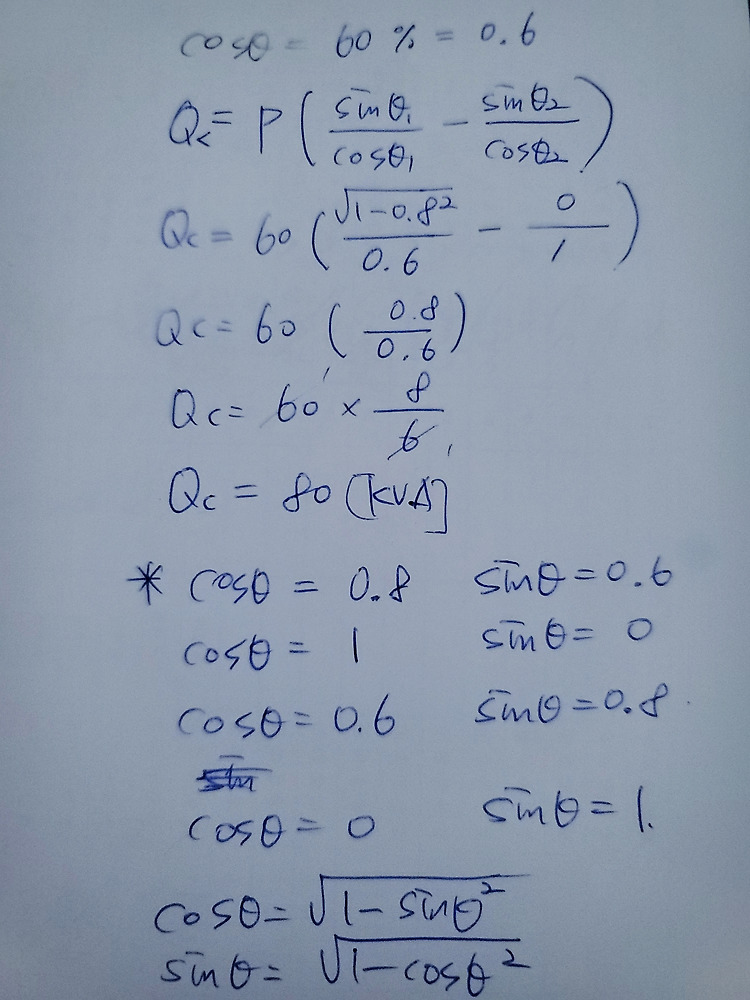 cosθ = 60 % = 0.6
Qc = P ( sinθ₁ / cosθ₁ − sinθ₂ / cosθ₂ )
Qc = 60 ( √(1−0.8²) / 0.6 − 0 / 1 )
Qc = 60 ( 0.8 / 0.6 )
Qc = 60 × 8 / 6
Qc = 80 [KVA]
* cosθ = 0.8 sinθ = 0.6
cosθ = 1 sinθ = 0
cosθ = 0.6 sinθ = 0.8
sin
cosθ = 0 sinθ = 1.
cosθ = √(1 − sinθ²)
sinθ = √(1 − cosθ²)